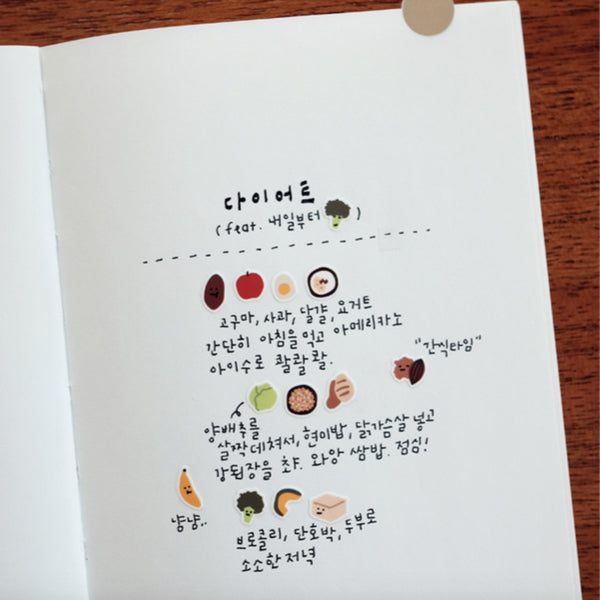 다이어트
(feat. 내일부터 )
고구마, 사과, 달걀, 요거트
간단히 아침을 먹고 아메리카노
아이수로 콸콸콸.
"간식타임"
양배추를
살짝 데쳐서, 현미밥, 닭가슴살 넣고
강된장을 촤. 와앙 쌈밥. 점심!
냠냠..
브로콜리, 단호박, 두부로
소소한 저녁